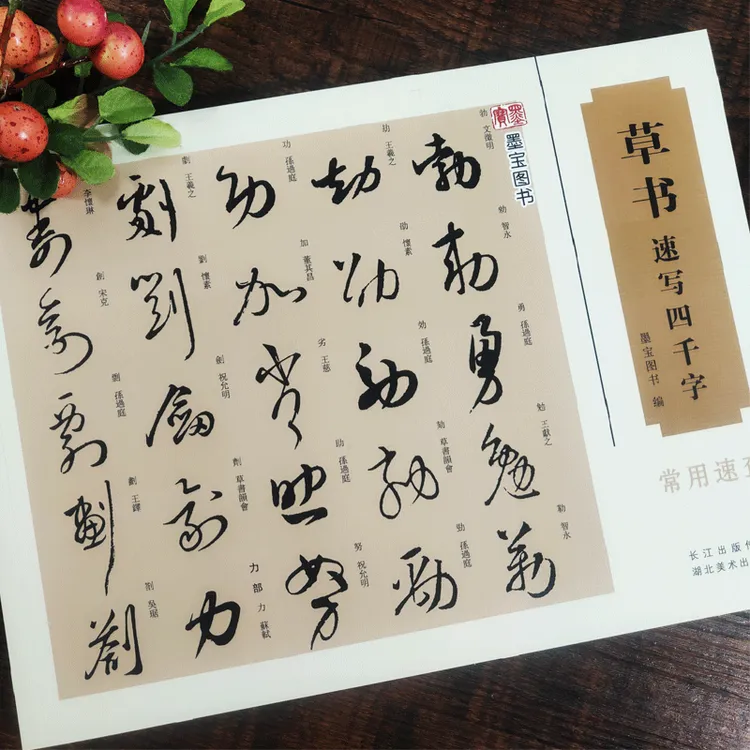 草书
速写四千字
墨宝图书 编
常用速查
长江出版传
湖北美术出
墨寶
墨宝图书
勃 文徵明
勅 智永
勇 孫過庭
勉 王獻之
勒 智永
劫 王羲之
劭 懷素
効 孫過庭
劾 草書韻會
勁 孫過庭
功 孫過庭
加 董其昌
劣 王慈
助 孫過庭
努 祝允明
劇 王羲之
劉 懷素
劍 祝允明
劑 草書韻會
力部
力 蘇軾
李懷琳
創 宋克
孫過庭
劃 王鐸
吳琚